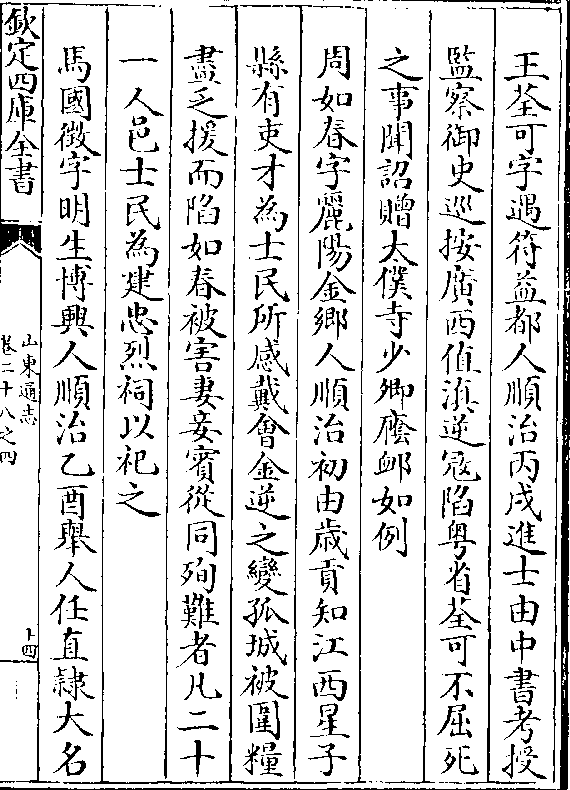 王荃可字遇符益都人順治丙戌進士由中書考授
監察御史巡按廣西值滇逆冦陷粤省荃可不屈死
之事聞詔贈太僕寺少卿廕䘏如例
周如春字麗陽金鄉人順治初由歲貢知江西星子
縣有吏才為士民所感戴會金逆之變孤城被圍糧
盡乏援而陷如春被害妻妾賓從同殉難者凡二十
一人邑士民為建忠烈祠以祀之
馬國徴字明生博興人順治乙酉舉人任直隸大名
欽定四庫全書
山東通志
卷二十八之四
十四